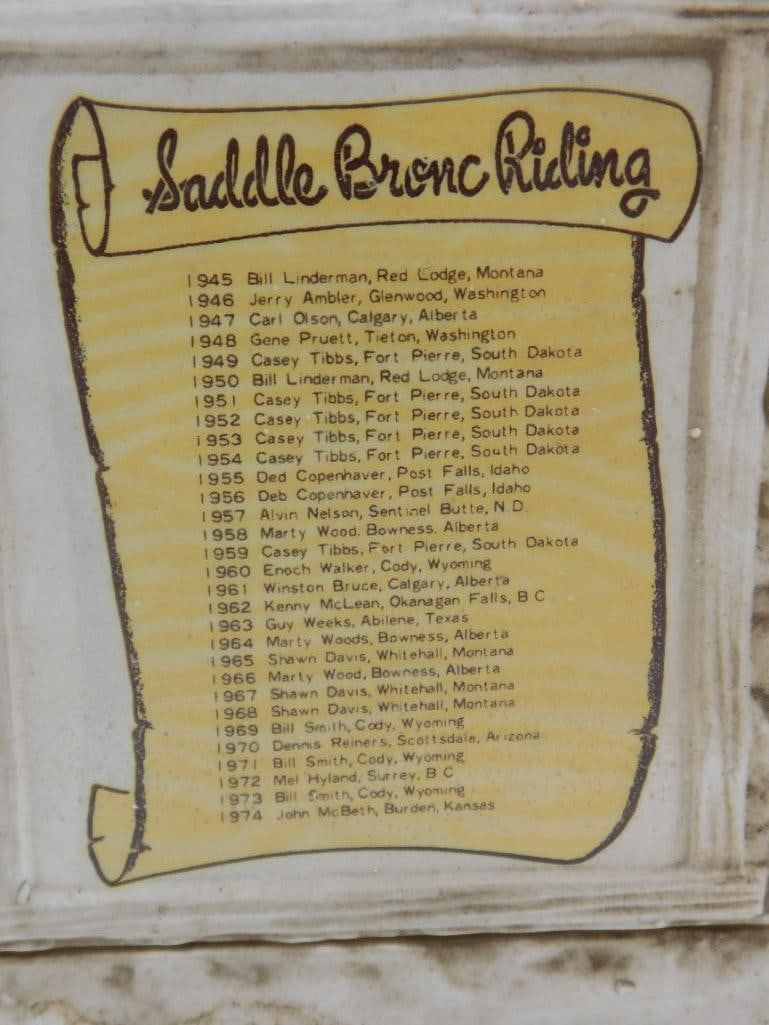 Saddle Bronc Riding
1945 Bill Linderman, Red Lodge, Montana
1946 Jerry Ambler, Glenwood, Washington
1947 Carl Olson, Calgary, Alberta
1948 Gene Pruett, Tieton, Washington
1949 Casey Tibbs, Fort Pierre, South Dakota
1950 Bill Linderman, Red Lodge, Montana
1951 Casey Tibbs, Fort Pierre, South Dakota
1952 Casey Tibbs, Fort Pierre, South Dakota
1953 Casey Tibbs, Fort Pierre, South Dakota
1954 Casey Tibbs, Fort Pierre, South Dakota
1955 Ded Copenhaver, Post Falls, Idaho
1956 Deb Copenhaver, Post Falls, Idaho
1957 Alvin Nelson, Sentinel Butte, N.D.
1958 Marty Wood. Bowness. Alberta
1959 Casey Tibbs, Fort Pierre, South Dakota
1960 Enoch Walker, Cody, Wyoming
1961 Winston Bruce, Calgary, Alberta
1962 Kenny McLean, Okanagan Falls, B C
1963 Guy Weeks, Abilene, Texas
1964 Marty Woods, Bowness, Alberta
1965 Shawn Davis, Whitehall, Montana
1966 Marty Wood, Bowness, Alberta
1967 Shawn Davis, Whitehall, Montana
1968 Shawn Davis, Whitehall, Montana
1969 Bill Smith, Cody, Wyoming
1970 Dennis Reiners, Scottsdale, Arizona
1971 Bill Smith, Cody, Wyoming
1972 Mel Hyland, Surrey, B C
1973 Bill Smith, Cody, Wyoming
1974 John McBeth, Burden, Kansas